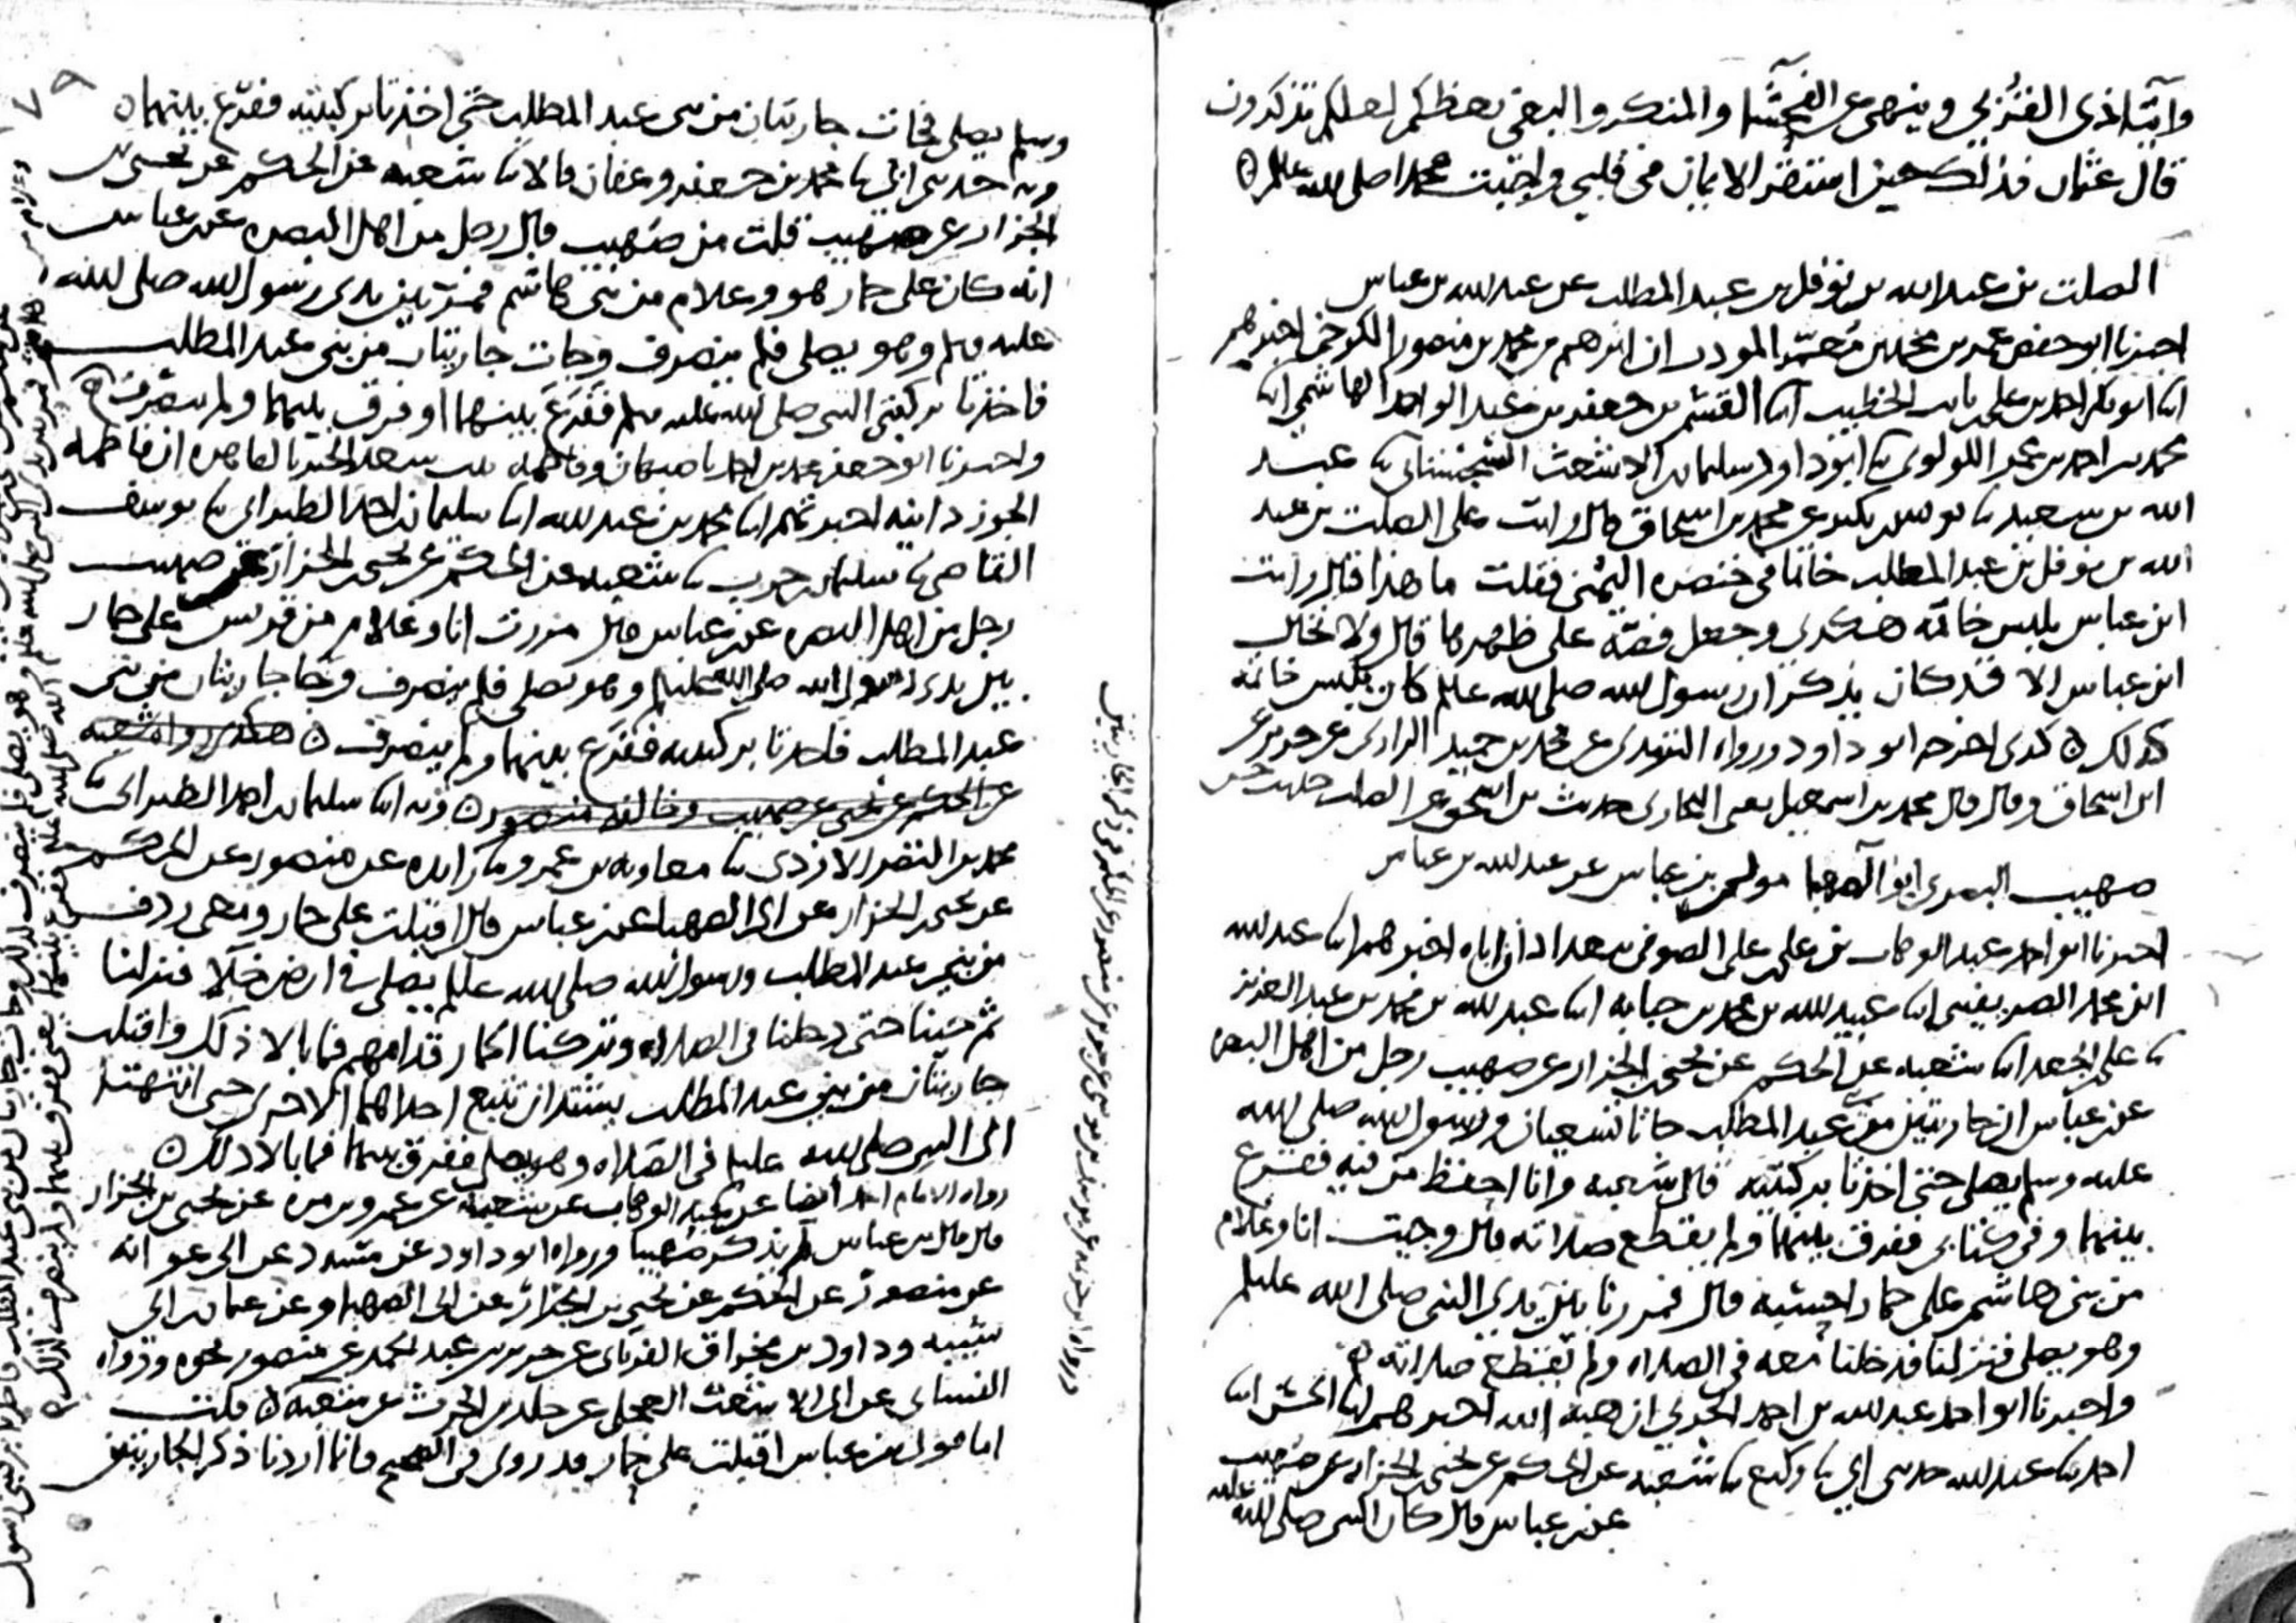 وإيتاء ذي القربى وينهى عن الفحشاء والمنكر والبغي يعظكم لعلكم تذكرون
قال عثمان فذلك حين استقر الايمان في قلبي واحببت محمدا صلى الله عليه وسلم
الصلت بن عبد الله بن نوفل بن عبد المطلب عن عبد الله بن عباس
اخبرنا ابو حفص عمر بن محمد بن معمر المودب ان ابرهيم بن محمد بن منصور الكرخي اخبرهم
ابنا ابو بكر احمد بن علي بن ثابت الخطيب ابنا القسم بن جعفر بن عبد الواحد الهاشمي ابنا
محمد بن احمد بن عمرو اللولوي ثنا ابو داود سليمان بن الاشعث السجستاني ثنا عبد
الله بن سعيد ثنا يونس بن بكير عن محمد بن اسحاق قال رايت على الصلت بن عبد
الله بن نوفل بن عبد المطلب خاتما في خنصره اليمنى فقلت ما هذا قال رايت
ابن عباس يلبس خاتمه هكذى وجعل فصه على ظهرها قال ولا يخال
ابن عباس الا قد كان يذكر ان رسول الله صلى الله عليه وسلم كان يلبس خاتمه
كذلك كذى اخرجه ابو داود ورواه الترمذي عن محمد بن حميد الرازي عن جرير عن
ابن اسحاق وقال قال محمد بن اسمعيل يعني البخاري حديث بن اسحق عن الصلت حديث حسن
صهيب البصري ابو الصهبا مولى بن عباس عن عبد الله بن عباس
اخبرنا ابو احمد عبد الوهاب بن علي بن علي الصوفي ببغداد ان اباه اخبرهم ابنا عبد الله
ابن محمد الصريفيني ابنا عبيد الله بن محمد بن حبابه ابنا عبد الله بن محمد بن عبد العزيز
ثنا علي بن الجعد ابنا شعبه عن الحكم عن يحيى بن الجزار عن صهيب رجل من اهل البصره
عن بن عباس ان جاريتين من بني عبد المطلب جاتا تسعيان ورسول الله صلى الله
عليه وسلم يصلي حتى اخذتا بركبتيه قال شعبه وانا احفظ من فيه ففرع
بينهما وفي كتابي ففرق بينهما ولم يقطع صلاته قال وجيت انا وغلام
من بني هاشم على حمار احسبه قال فمررنا بين يدي النبي صلى الله عليه وسلم
وهو يصلي فنزلنا فدخلنا معه في الصلاه ولم يقطع صلاته
واخبرنا ابو احمد عبد الله بن احمد الحربي ان هبة الله اخبرهم ابنا الحسن ابنا
احمد ثنا عبد الله حدثني ابي ثنا وكيع ثنا شعبه عن الحكم عن يحيى بن الجزار عن صهيب
عن بن عباس قال كان النبي صلى الله عليه
وسلم يصلي فجات جاريتان من بني عبد المطلب حتى اخذتا بركبتيه ففرع بينهما
وبه احمد حدثني ابي ثنا محمد بن جعفر وعفان قالا ثنا شعبه عن الحكم عن يحيى بن
الجزار عن صهيب قلت من صهيب قال رجل من اهل البصره عن بن عباس
انه كان على حمار هو وغلام من بني هاشم فمر بين يدي رسول الله صلى الله
عليه وسلم وهو يصلي فلم ينصرف وجات جاريتان من بني عبد المطلب
فاخذتا بركبتي النبي صلى الله عليه وسلم ففرع بينهما او فرق بينهما ولم ينصرف
واخبرنا ابو جعفر محمد بن احمد باصبهان وفاطمه بنت سعد الخير بالقاهره ان فاطمه
الجوزدانيه اخبرتهم ابنا محمد بن عبد الله ابنا سليمان بن احمد الطبراني ثنا يوسف
القاضي ثنا سليمان بن حرب ثنا شعبه عن الحكم عن يحيى بن الجزار عن صهيب
رجل من اهل البصره عن بن عباس قال مررت انا وغلام من قريش على حمار
بين يدي رسول الله صلى الله عليه وسلم وهو يصلي فلم ينصرف وجا جاريتان من بني
عبد المطلب فاخذتا بركبتيه ففرع بينهما ولم ينصرف هكذى رواه شعبه
عن الحكم عن يحيى عن صهيب وخالفه منصور وبه ابنا سليمان بن احمد الطبراني ثنا
محمد بن النضر الازدي ثنا معاويه بن عمرو ثنا زايده عن منصور عن الحكم
عن يحيى بن الجزار عن ابي الصهبا عن بن عباس قال اقبلت على حمار ومعي ردف
من بني عبد المطلب ورسول الله صلى الله عليه وسلم يصلي في ارض خلا فنزلنا
ثم جينا حتى دخلنا في الصلاه وتركنا الحمار قدامهم فما بالا ذلك واقبلت
جاريتان من بني عبد المطلب يشتدان تتبع احداهما الاخرى حتى انتهتا
الى النبي صلى الله عليه وسلم في الصلاه وهو يصلي ففرق بينهما فما بالا ذلك
رواه الامام احمد ايضا عن عبد الوهاب عن شعبه عن عمرو بن مره عن يحيى بن الجزار
قال قال بن عباس لم يذكر صهيبا ورواه ابو داود عن مسدد عن ابي عوانه
عن منصور عن الحكم عن يحيى بن الجزار عن ابي الصهبا وعن عثمان بن ابي
شيبه وداود بن مخراق الفريابي عن جرير بن عبد الحميد عن منصور نحوه ورواه
النساي عن ابي الاشعث العجلي عن خالد بن الحرث عن شعبه قلت
اما قول بن عباس اقبلت على حمار قد روي في الصحيح وانما اردنا ذكر الجاريتين